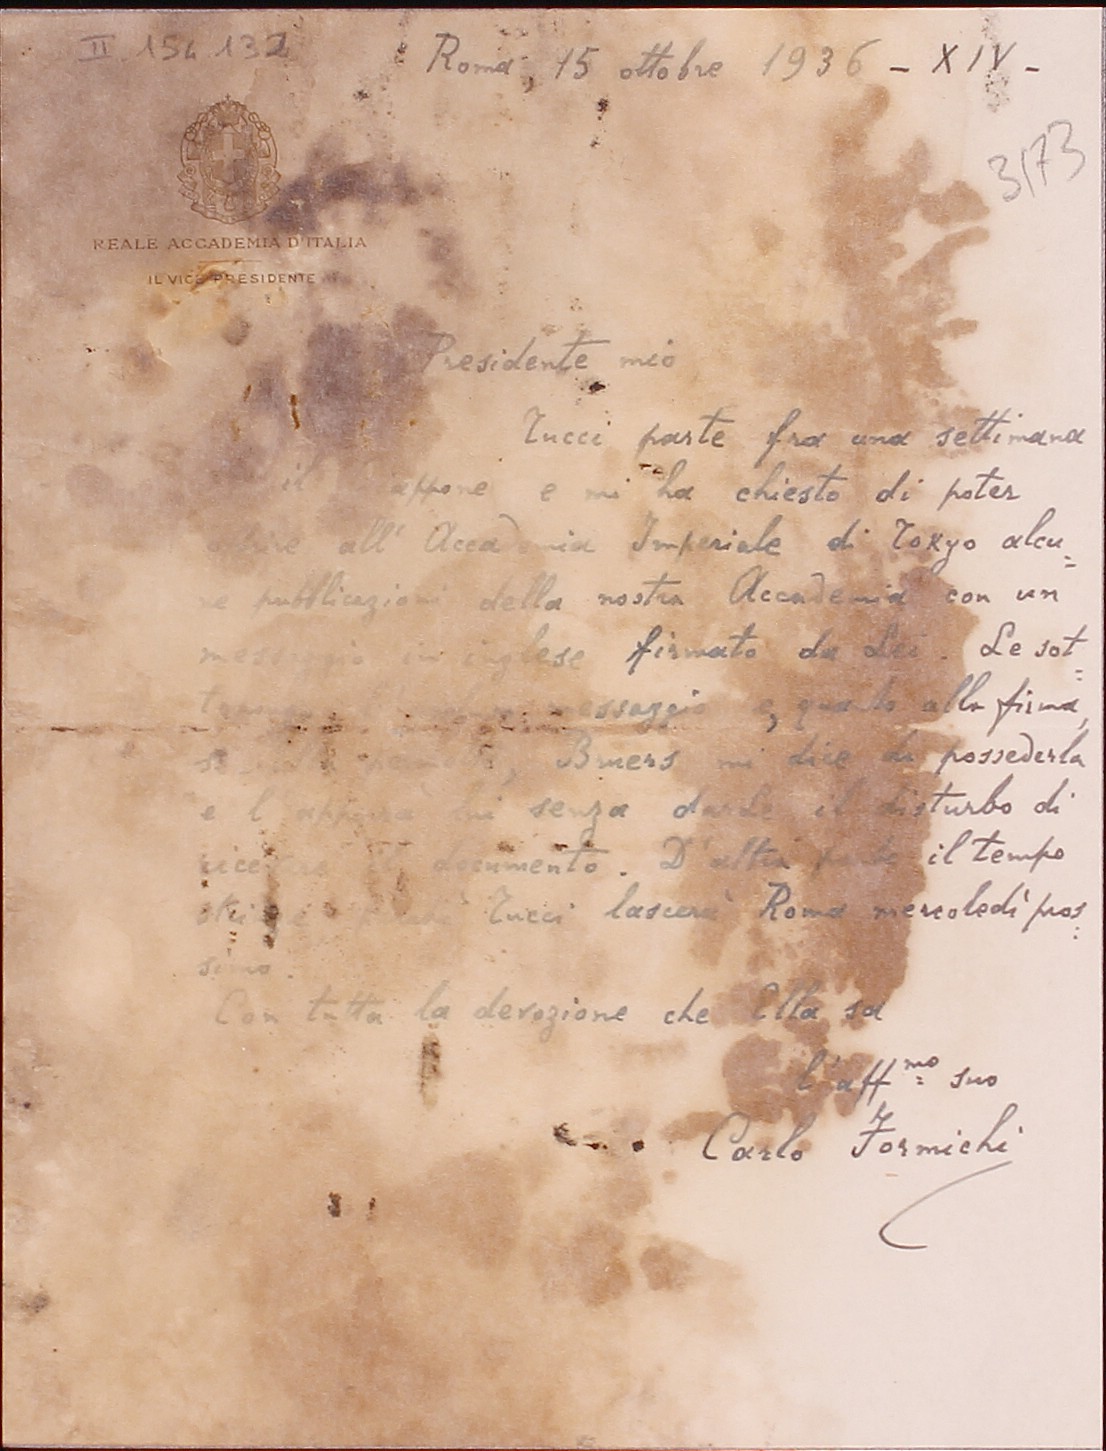 II 154 132
Roma, 15 ottobre 1936 - XIV -
3173
REALE ACCADEMIA D'ITALIA
IL VICE PRESIDENTE
Presidente mio
Tucci parte fra una settimana
il appone e mi ha chiesto di poter
offrire all' Accademia Imperiale di Tokyo alcu=
ne pubblicazioni della nostra Accademia con un
messaggio in inglese firmato da Lei. Le sot=
messaggio e, quanto alla firma,
Bruers mi dice di possederla
e l'apporrà lui senza darle il disturbo di
documento. D'altra parte il tempo
Tucci lascerà Roma mercoledì pros=
simo.
Con tutta la devozione che Ella sa
l'aff.mo suo
Carlo Formichi